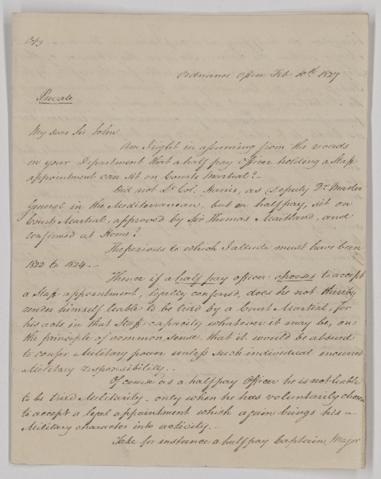 Ordnance Office Feb. 10th 1827
Private
My dear Sir John
Am I right in assuming from the records
in your Department that a half pay officer holding a Staff
appointment can sit on Courts Martial?
Did not Lt. Col. Harris, as Deputy Qr. Master
General in the Mediterranean, but on half pay, sit on
Courts Martial, approved by Sir Thomas Maitland, and
confirmed at Home?
The periods to which I allude must have been
1822 to 1824
Hence if a half pay officer chooses to accept
a Staff appointment, legally conferred, does he not thereby
render himself liable to be tried by a Court Martial, for
his acts in that Staff capacity whatever it may be, on
the principle of common sense, that it would be absurd
to confer Military power unless such individual incurred
Military responsibility.
Of course as a half pay Officer he is not liable
to be tried Militarily - only when he has voluntarily chosen
to accept a legal appointment which again brings his
Military character into activity.
Take for instance a half pay Captain, Major